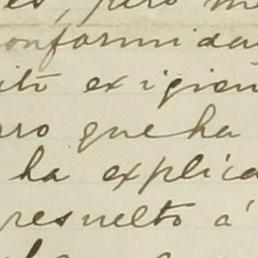 pero me
conformida
exigien
rro que ha
ha explica
resuelto á